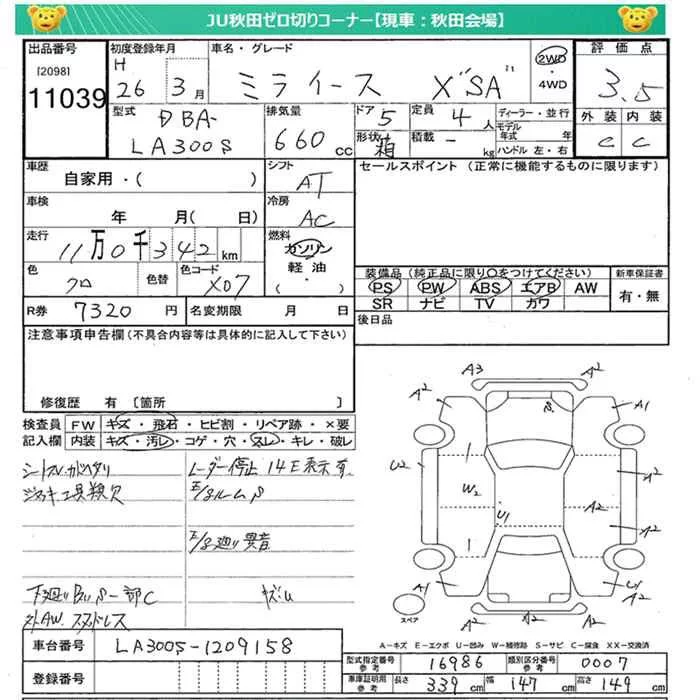 JU秋田ゼロ切りコーナー【現車：秋田会場】
出品番号
[2098]
11039
初度登録年月
H
26 3月
車名・グレード
ミライース X"SA"
2WD
・
4WD
評価点
3.5
外装 内装
C C
型式
DBA-
LA300S
排気量
660 cc
ドア 5
形状 箱
定員 4人
積載 - kg
ディーラー・並行
モデル
年式 年
ハンドル 左・右
車歴
自家用・( )
シフト
AT
セールスポイント (正常に機能するものに限ります)
車検
年 月( 日)
冷房
AC
走行
11万0千342km
燃料
ガソリン
軽油・
( )
色
クロ
色替
色コード
X07
装備品(純正品に限り〇をつけてください)
新車保証書
PS PW ABS エアB AW
有・無
SR ナビ TV カワ
R券 7320 円
名変期限 月 日
後日品
注意事項申告欄(不具合内容等は具体的に記入して下さい)
修復歴 有 [箇所
検査員
記入欄
FW キズ・飛石・ヒビ割・リペア跡・×要
内装 キズ・汚レ・コゲ・穴・スレ・キレ・破レ
ジャッキ工具類欠
レーダー停止 14E表示有
E/gルームS
E/g廻り異音
下廻りBuS一部C
社外AW スタッドレス
A3 A2
A2 S A1
U2 A2
W2 A2
U1 A2
A1 U1
A2 A2
スペア
A－キズ E－エクボ U－凹み W－補修跡 S－サビ C－腐食 XX－交換済
車台番号
LA300S-1209158
登録番号
型式指定番号
参考
16986
類別区分番号
参考
0007
車庫証明用
参考
長さ 339cm 幅 147cm 高さ 149cm